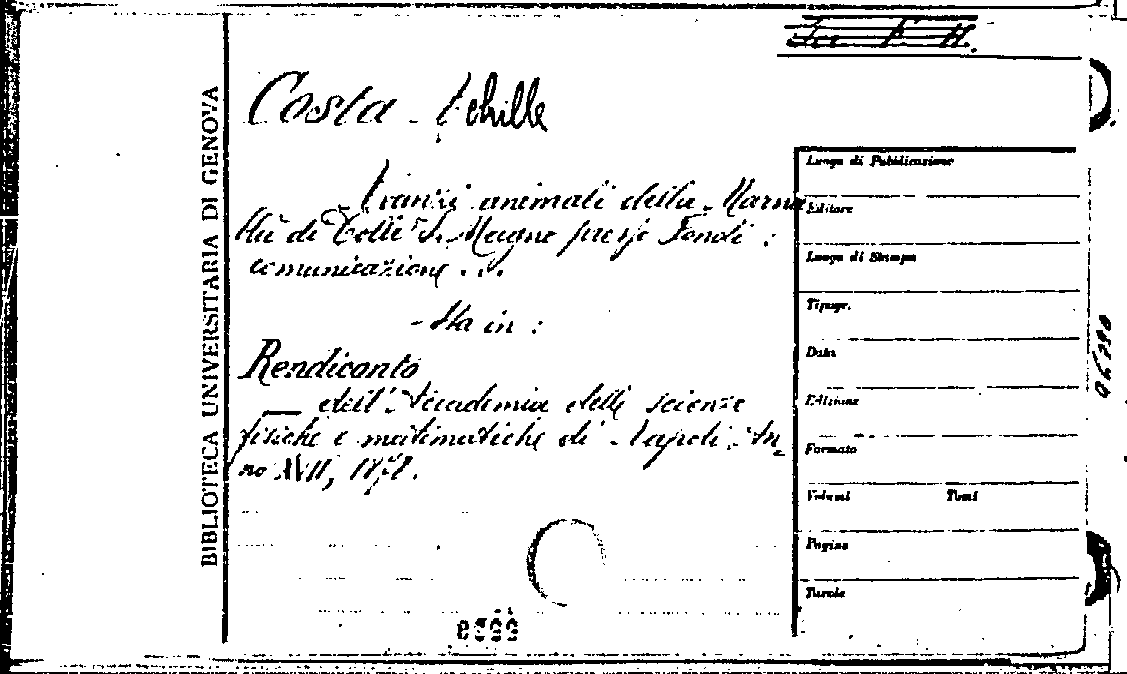 BIBLIOTECA UNIVERSITARIA DI GENOVA
Costa Achille
Avanzi animali della
di Colle S. Magno presso Fondi :
comunicazione . . .
- Sta in :
Rendiconto
dell'Accademia delle scienze
fisiche e matematiche di Napoli. An
no XVII, 1878.
Luogo di Pubblicazione
Editore
Luogo di Stampa
Tipogr.
Data
Edizione
Formato
Volumi Tomi
Pagine
Tavole